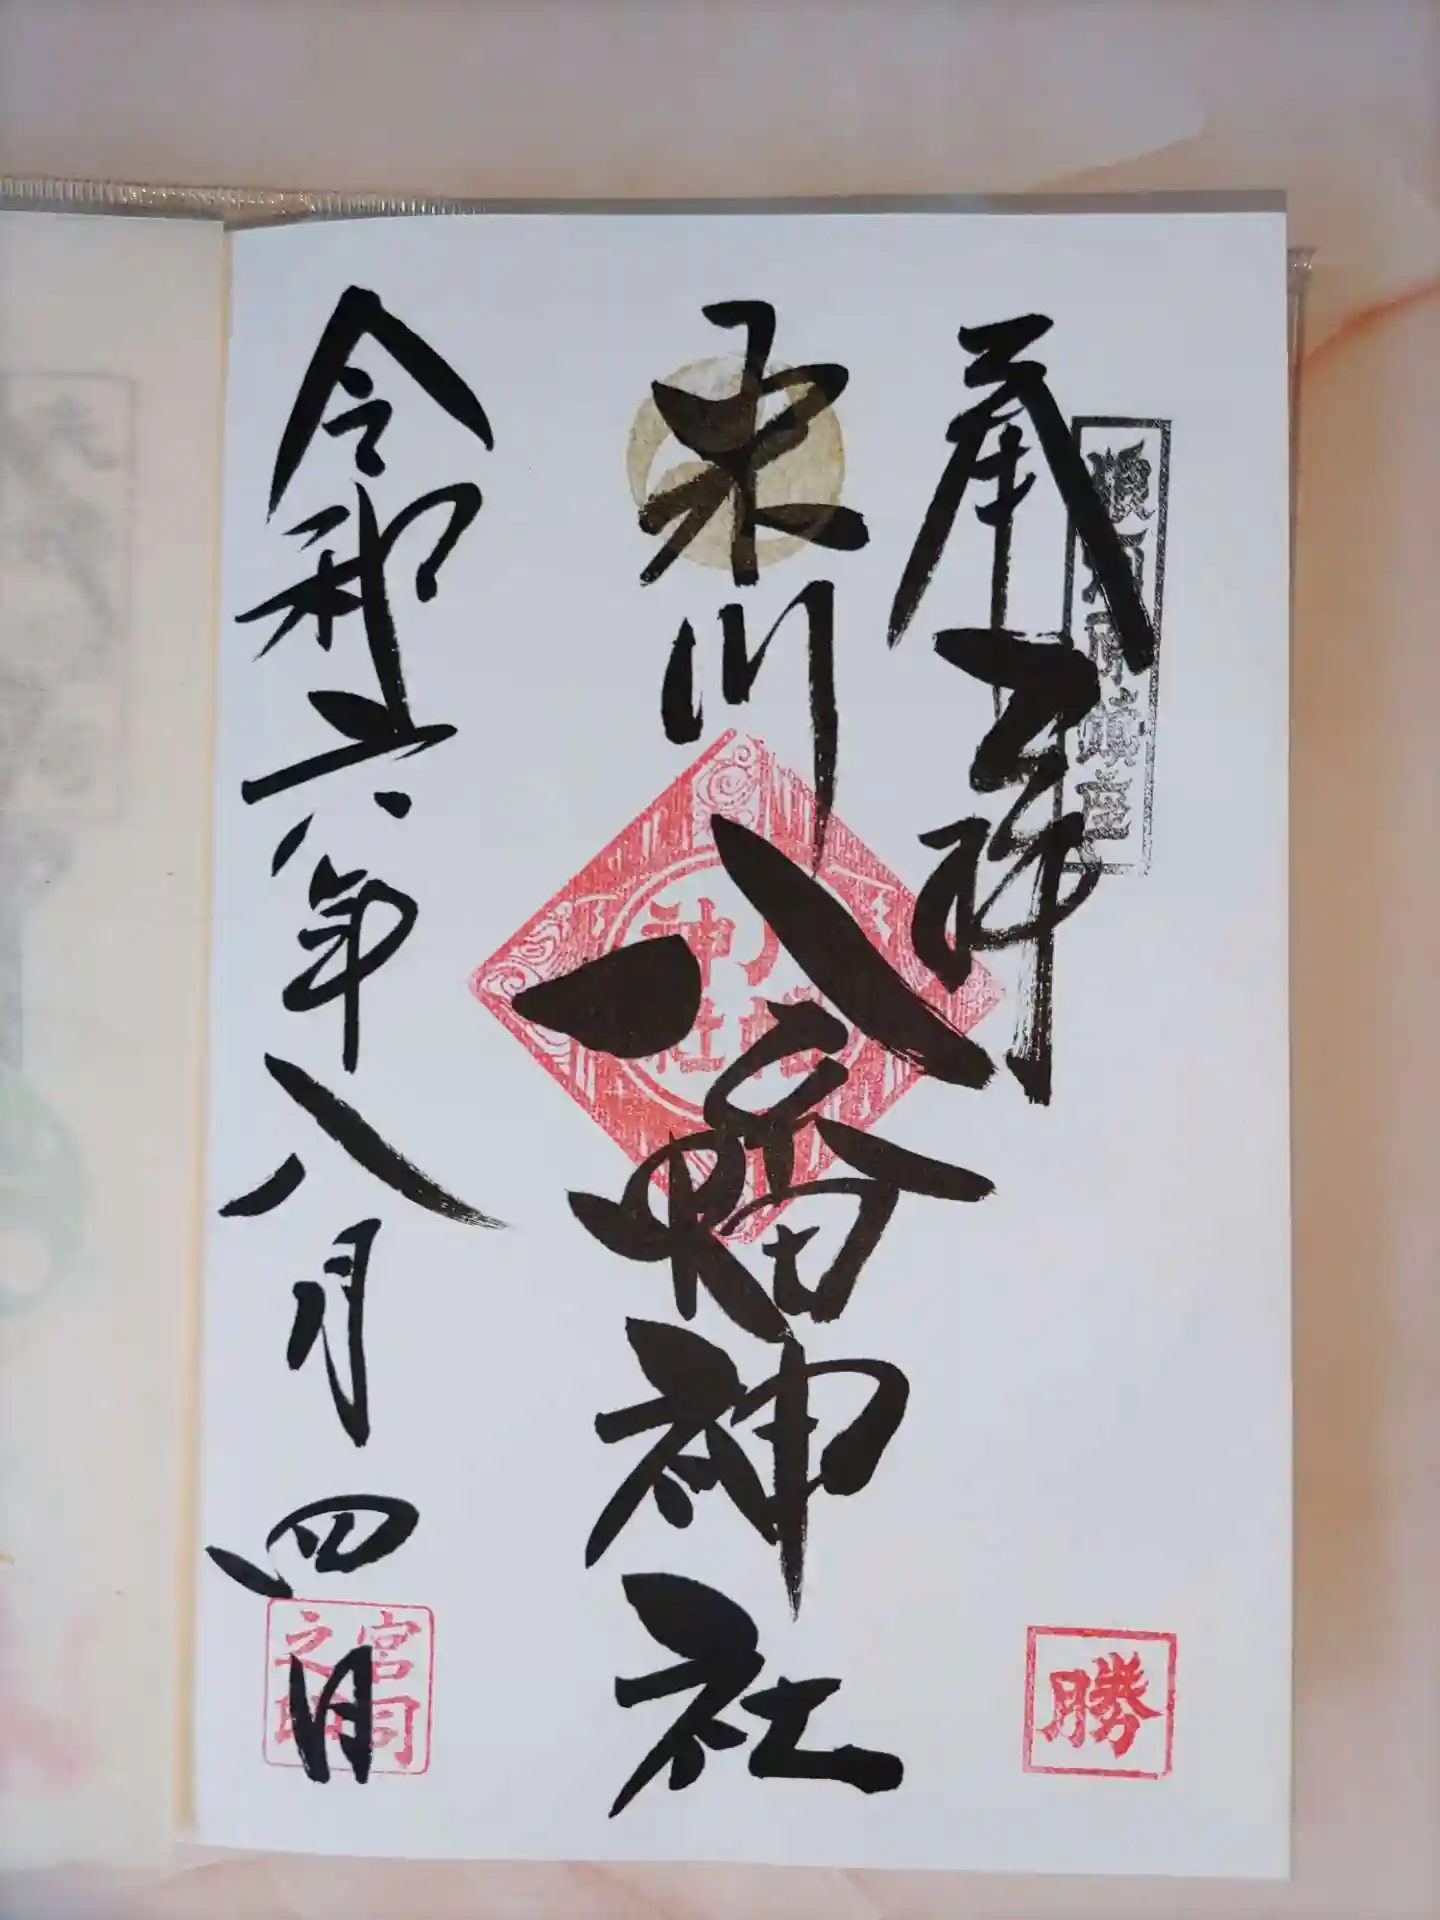 奉拝
狼河原鎮座
勝
米川八幡神社
八幡
神社
令和六年八月四日
宮司
之印